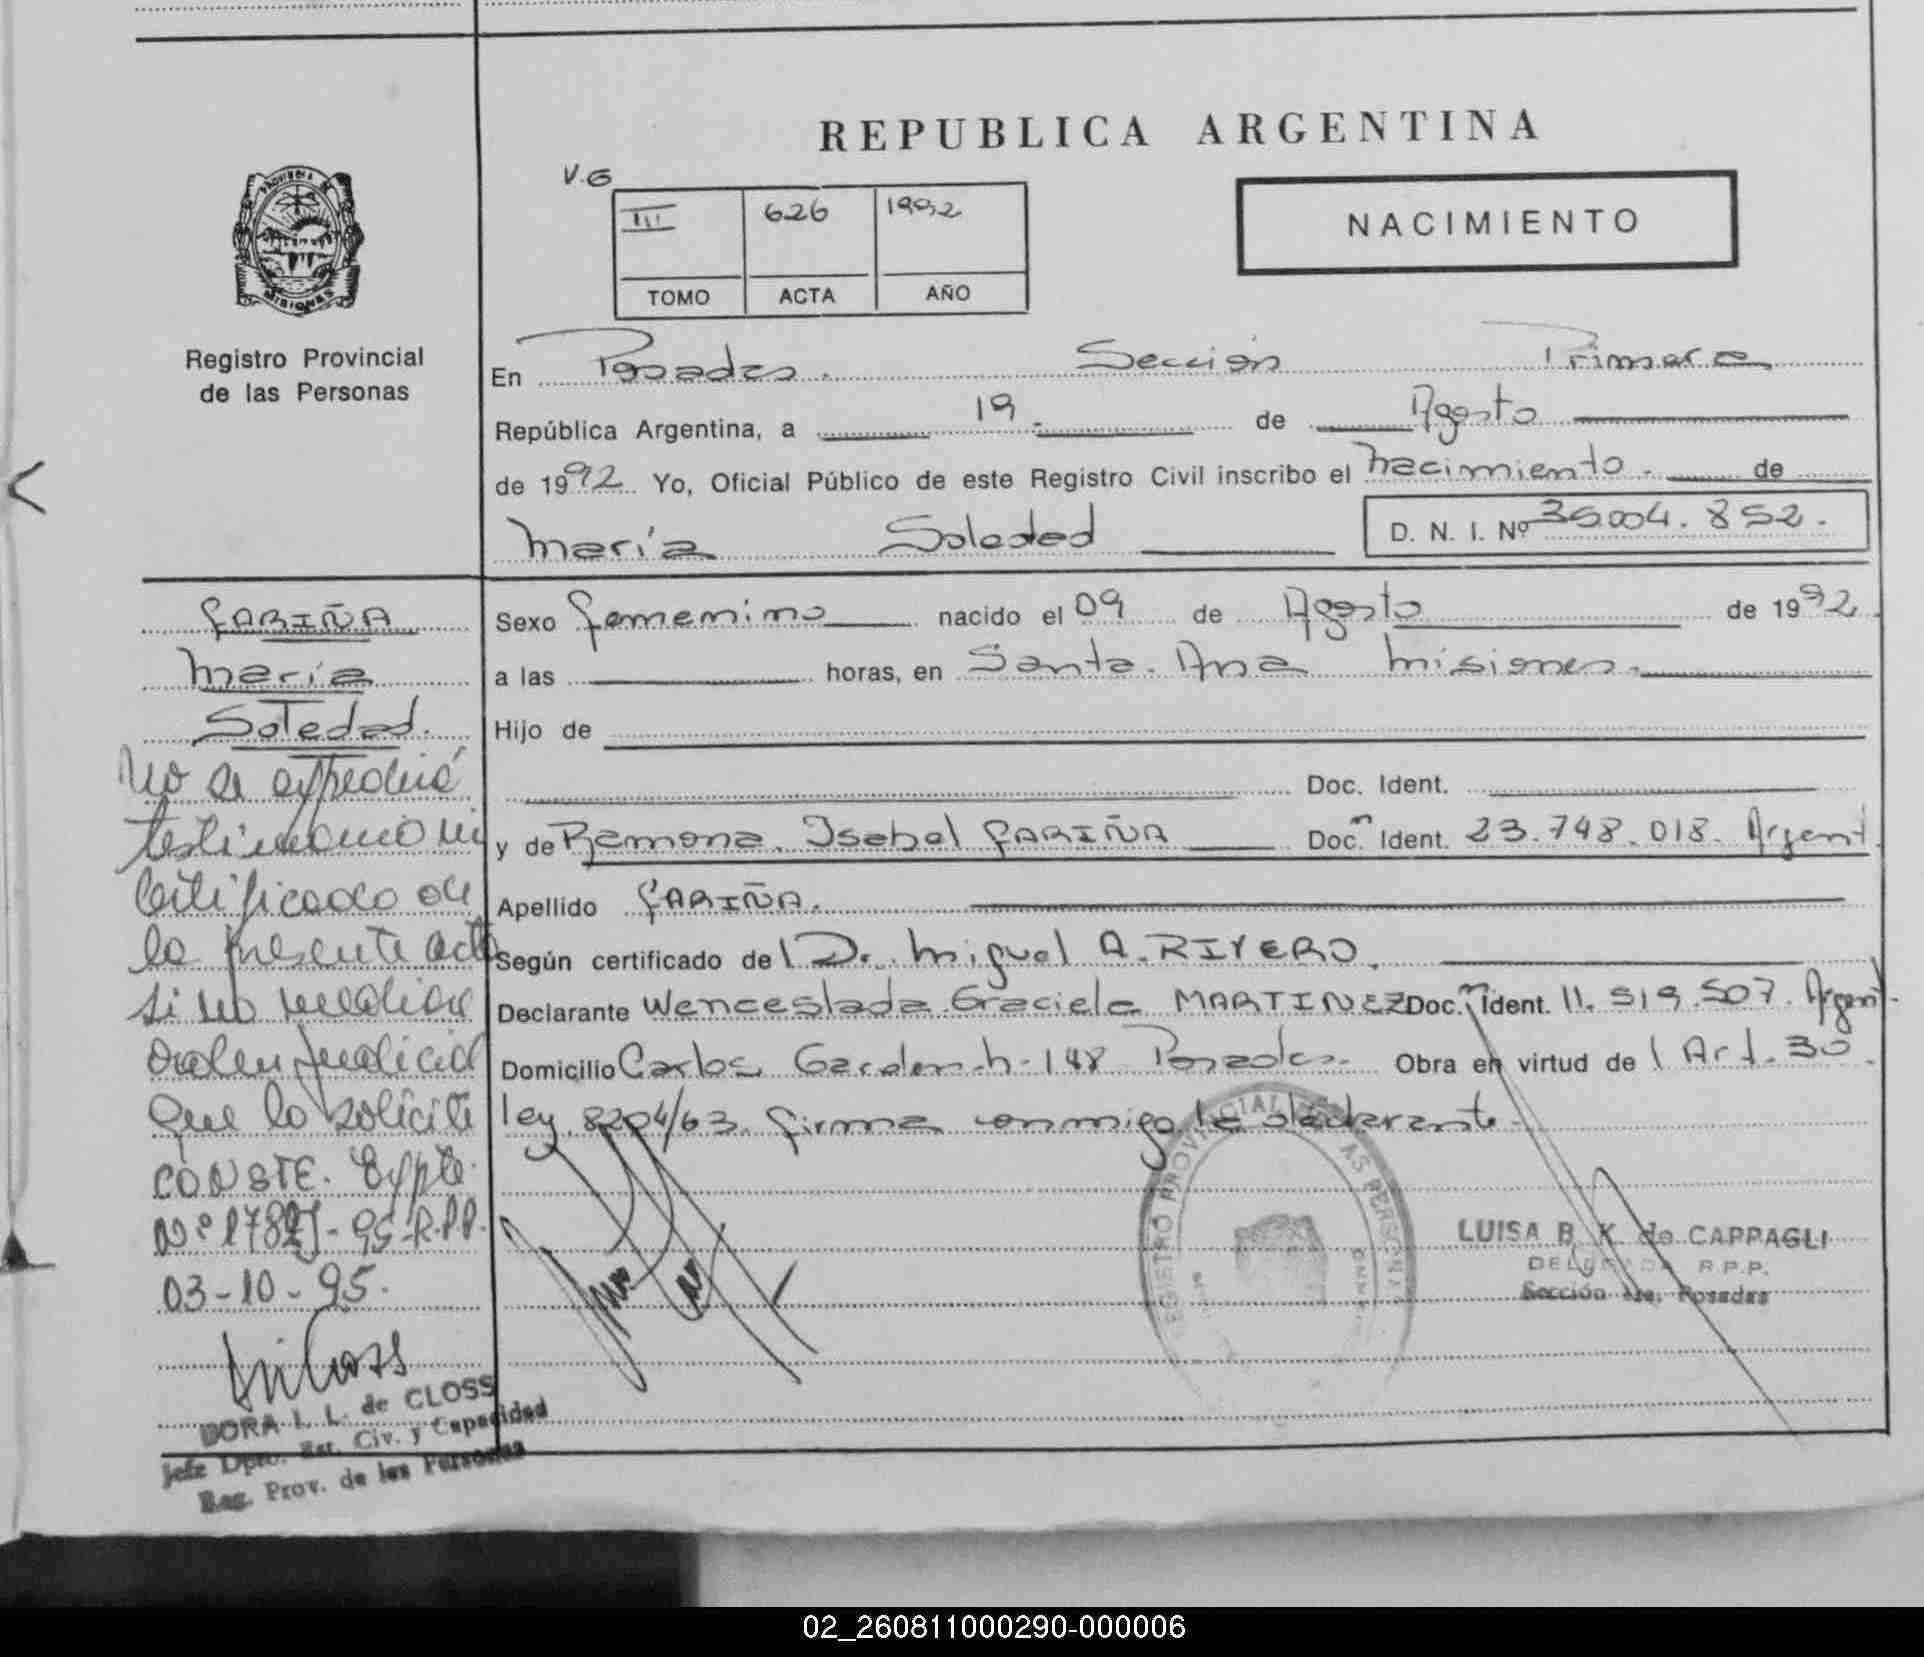 REPUBLICA ARGENTINA
V.G
III 626 1992
TOMO ACTA AÑO
NACIMIENTO
PROVINCIA DE
MISIONES
Registro Provincial
de las Personas
En Posadas. Sección Primera
República Argentina, a 19. de Agosto
de 1992 Yo, Oficial Público de este Registro Civil inscribo el nacimiento. de
María Soledad D. N. I. Nº 36.004.852.
FARIÑA
María
Soledad.
Sexo femenino nacido el 09 de Agosto de 1992.
a las horas, en Santa. Ana Misiones.
Hijo de
Doc. Ident.
y de Ramona. Isabel FARIÑA Doc.n Ident. 23.748.018. Argent.
Apellido FARIÑA.
Según certificado del Dr. Miguel A. RIVERO.
Declarante Wenceslada Graciela MARTINEZ Doc.n Ident. 11.519.507. Argent.
Domicilio Carlos Gardel 148 Posadas. Obra en virtud del Art. 30.
ley 8204/63. firma conmigo la declarante.
No se expedirá
testimonio ni
certificado de
la presente acta
si no mediare
orden judicial
que lo solicite
CONSTE. Expte.
95-R.P.P.
03-10-95.
DORA I. L. de CLOSS
Jefe Dpto. Est. Civ. y Capacidad
Reg. Prov. de las Personas
REGISTRO PROVINCIAL DE LAS PERSONAS
LUISA B. K. de CAPPAGLI
DELEGADA R.P.P.
Sección 1ra. Posadas
02_260811000290-000006